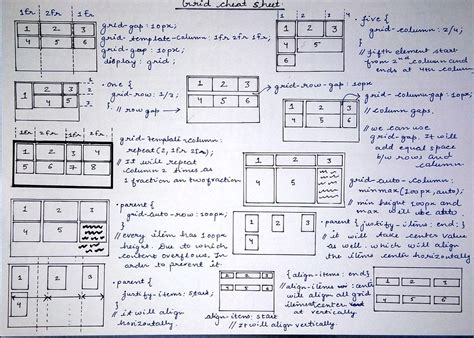 Grid cheat sheet
1fr 2fr 1fr
1 2 3
4 5 6
grid-gap: 10px;
grid-template-column: 1fr 2fr 1fr;
grid-gap: 10px;
display: grid;
1
2 3
4
.five {
grid-column: 2/4;
}
// fifth element start
from 2nd column and
ends at 4th column
1 2 3
4 5 6
1
2
3
.one {
grid-row: 1/3;
}
// row gap
1 2 3
4 5 6
grid-row-gap: 10px;
1 2 3
4 5 6
grid-column-gap: 10px;
// column gaps.
// we can use
grid-gap. It will
add equal space
b/w rows and
column
1fr 2fr 1fr 2fr
1 2 3 4
5 6 7 8
grid-template-column:
repeat(2, 1fr 2fr);
// It will repeat
column 2 times as
1 fraction an two fraction
1 2 3
4 5
grid-auto-column:
minmax(100px, auto);
// min height 100px and
max will be auto
1 2 3
4 5
.parent {
grid-auto-row: 100px;
}
// every item has 100px
height. Due to which
content overflows. In
order to prevent it.
1 2 3
4 5 6
.parent { justify-items: end; }
// it will take center value
as well. which will align
the items center horizontally
1 2 3
4 5 6
.parent {
justify-items: start;
}
// it will align
horizontally.
1 2 3
4 5 6
align-items: start
// It will align vertically.
{align-items: end;}
// align-items: center
will align all grid
items center
at vertically.
1 2 3
4 5 6